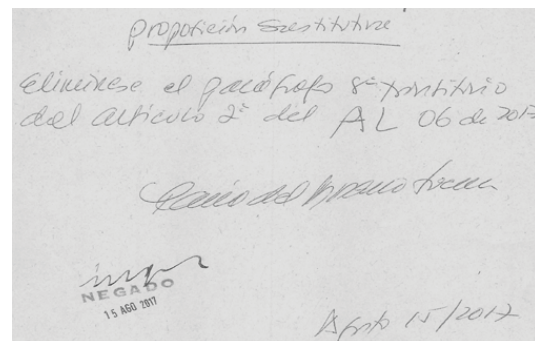 Proposición Sustitutiva
Elimínese el parágrafo 8º transitorio
del artículo 2º del AL 06 de 2017
NEGADO
15 AGO 2017
Agosto 15/2017